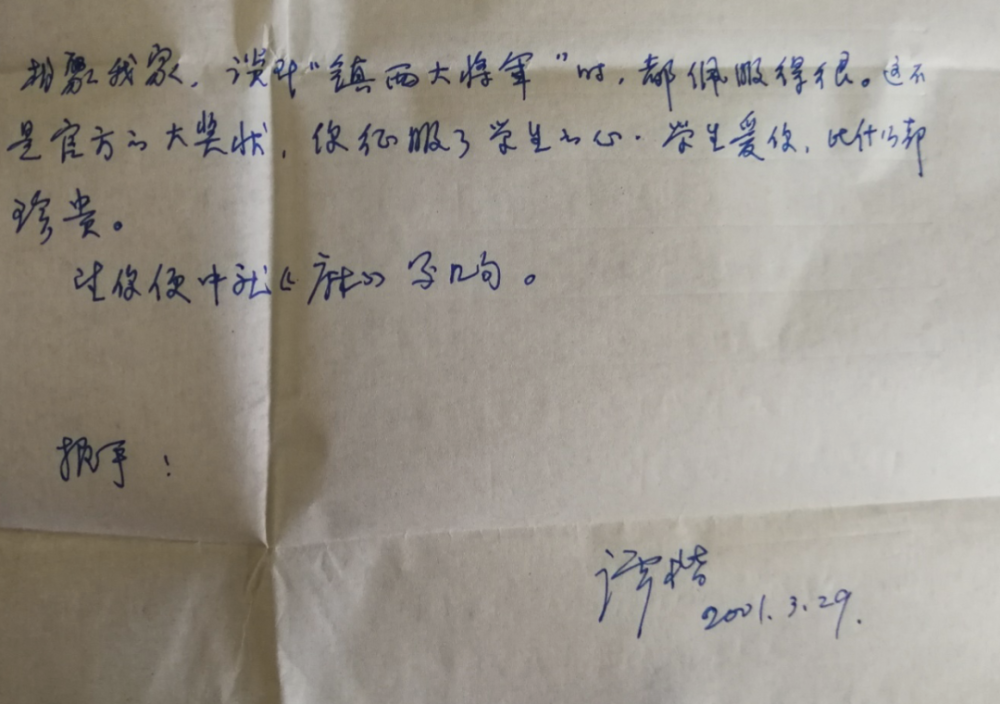 相聚我家，谈到“鎮西大将軍”时，都佩服得很。这不
是官方的大奖状，你征服了学生的心．学生爱你，比什么都
珍贵。
请你便中就《》写几句。
握手！
谭楷
2001.3.29.